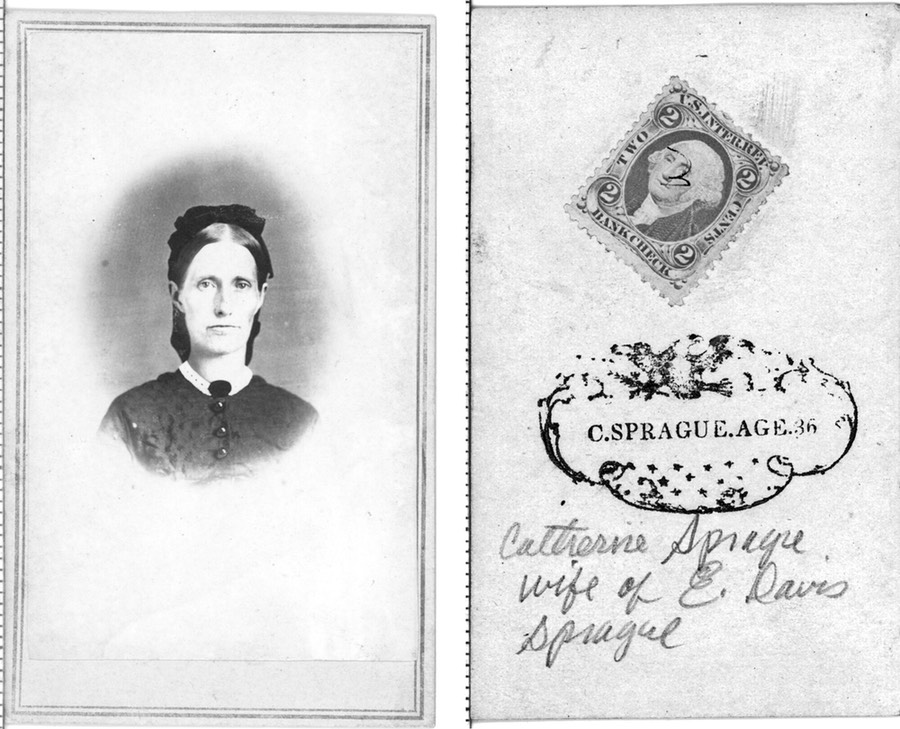 U.S. INTER. REV.
TWO
CENTS
BANK CHECK
2
2
2
2
2
C.SPRAGUE.AGE.36
Catherine Sprague
wife of E. Davis
Sprague